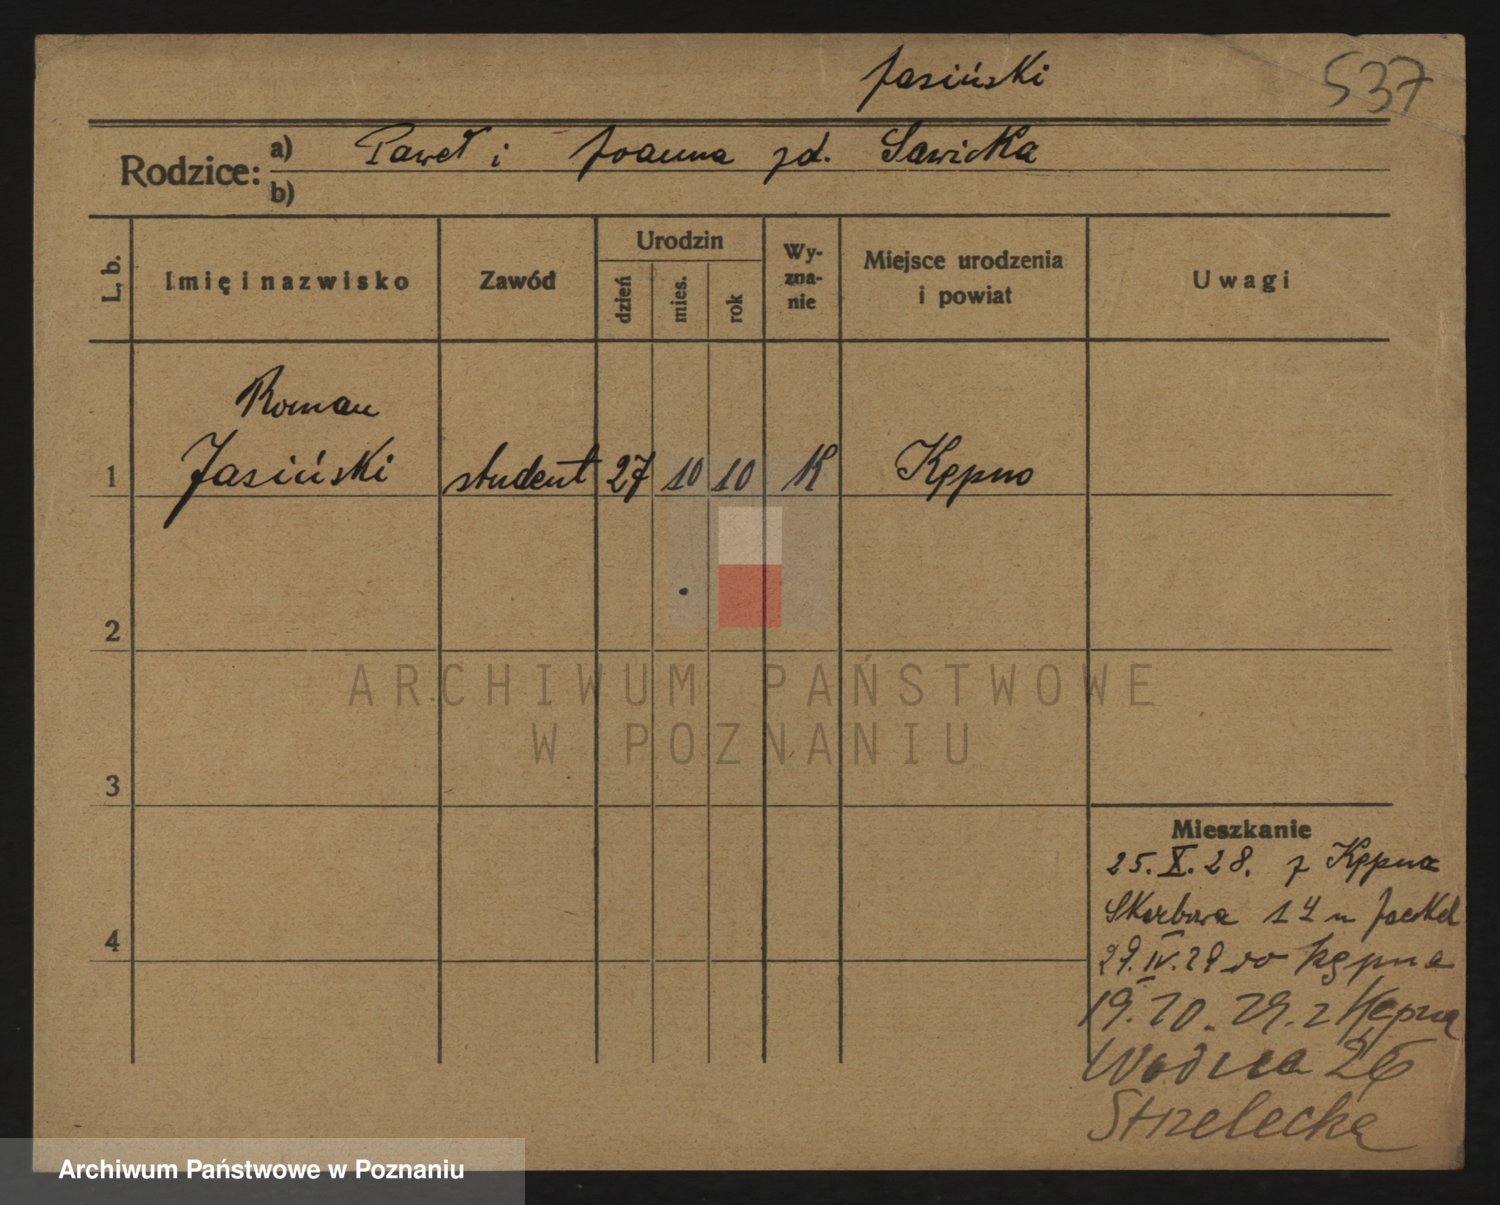 Jasiński
537
Rodzice:
a) Paweł i Joanna zd. Sawicka
b)
L. b.
Imię i nazwisko
Zawód
Urodzin
dzień
mies.
rok
Wy-
zna-
nie
Miejsce urodzenia
i powiat
Uwagi
Roman
1 Jasiński student 27 10 10 K Kępno
2
3
4
ARCHIWUM PAŃSTWOWE
W POZNANIU
Mieszkanie
25.X.28. z Kępna
Skarbowa 14 u Jaeckel
29.IV.29 do Kępna
19.10.29. z Kępna
Wodna 26
Strzelecka
Archiwum Państwowe w Poznaniu